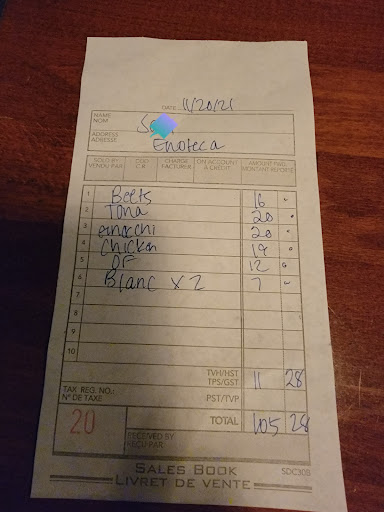 DATE 11/20/21
NAME
NOM
ADDRESS
ADRESSE Enoteca
SOLD BY
VENDU PAR
COD
C.R.
CHARGE
FACTURER
ON ACCOUNT
A CRÉDIT
AMOUNT PAID
MONTANT REPORTÉ
1 Beets 16
2 Tona 20
3 gnocchi 20
4 Chicken 19
5 OF 12
6 Blanc x 2 7
7
8
9
10
TVH/HST
TPS/GST 11 28
TAX REG. NO.:
N° DE TAXE
PST/TVP
20
TOTAL 105 28
RECEIVED BY
REÇU PAR
SALES BOOK
LIVRET DE VENTE
SDC30B